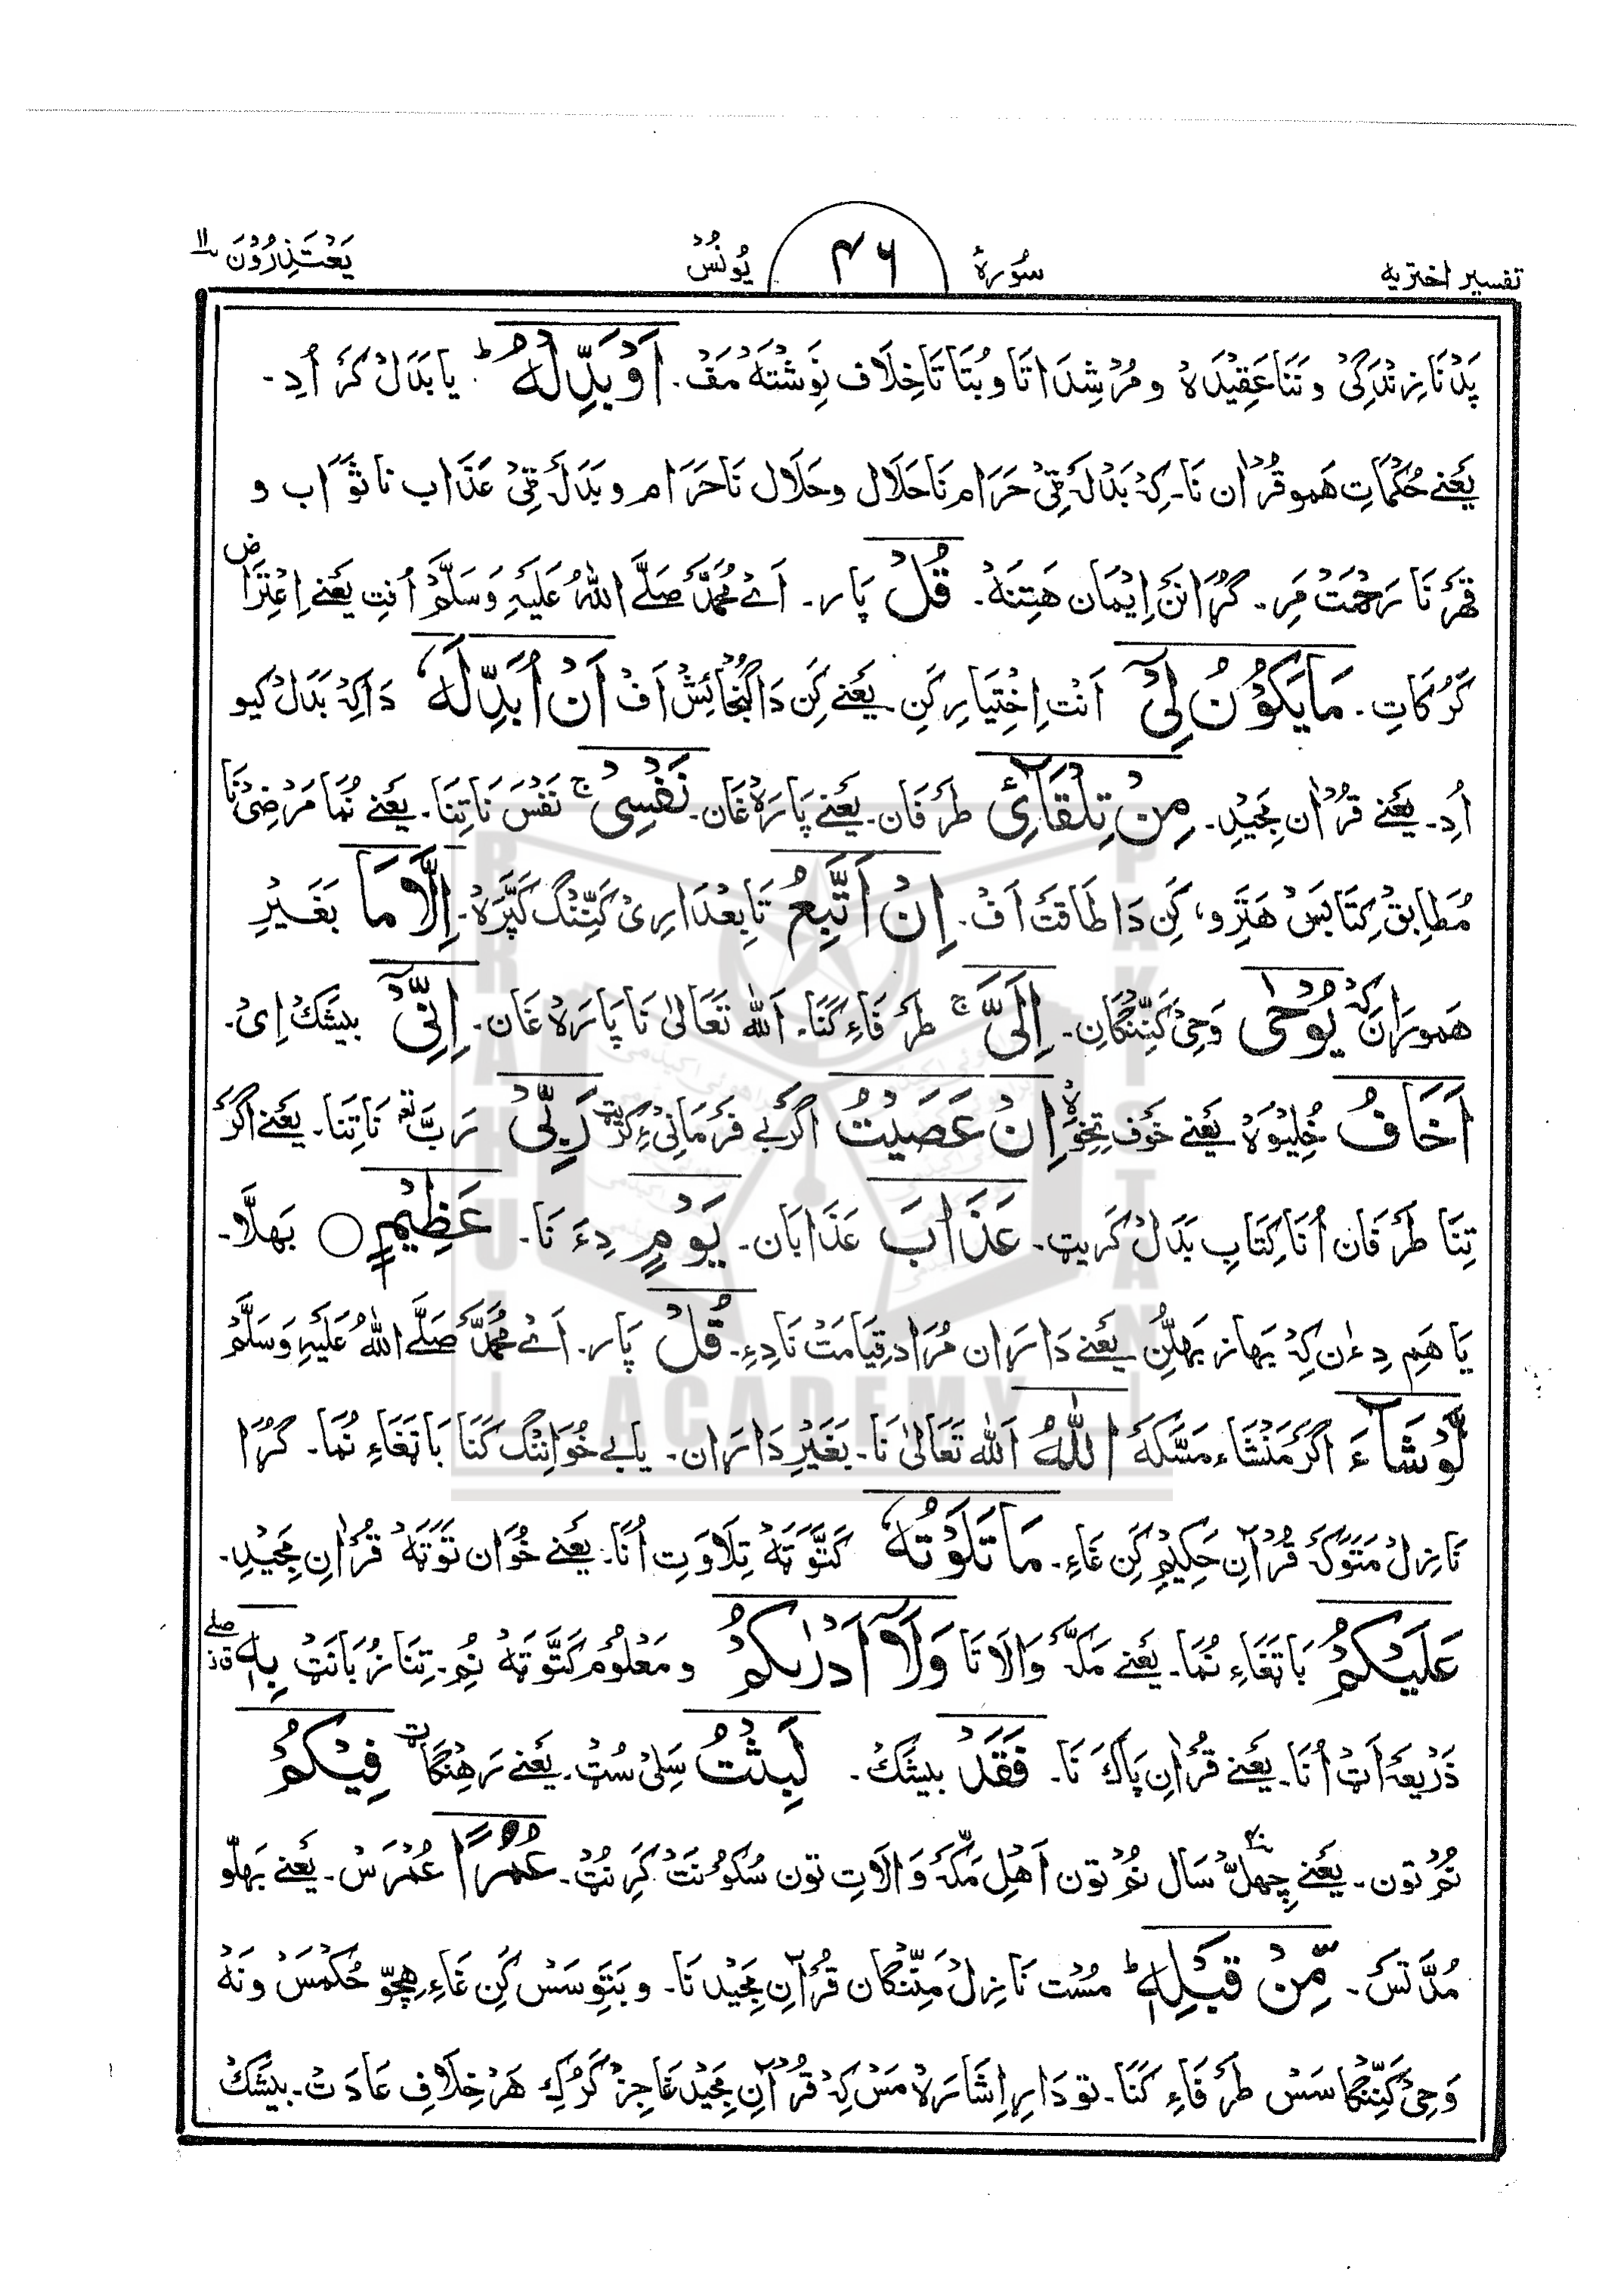 تفسير اختريه
سُوۡرهٔ
۴۶
يُونُسۡ
يَعۡتَذِرُوۡنَ ۱۱
پَدۡنَا زِنۡدَگِیۡ و تَنَا عَقِيۡدَهۡ و مُرۡشِدَاتَا و بُتَا تَا خِلَاف نَوِشۡتَهۡ مَفۡ۔ اَوۡ بَدِّلۡهُ ؕ يَا بَدَلۡ کَرۡ اُدِ۔
يَعۡنِے حُکۡمَاتِ هَمو قُرۡاٰن نَا۔ کِہۡ بَدۡلَہ ٹِیۡ حَرَام نَا حَلَال و حَلَال نَا حَرَام و بَدَلَہ ٹِیۡ عَذَاب نَا ثَوَاب و
قَهۡرنَا رَحۡمَتۡ مَرِ۔ گُڑَا نَنۡ اِيۡمَان هَتِنَهۡ۔ قُلۡ پَار۔ اَے مُحَمَّدۡ صَلَّے اللهُ عَلَيۡهِ وَسَلَّمۡ اُنۡتِ يَعۡنِے اِعۡتِرَاض
کَرُکَاتِ۔ مَا يَكُوۡنُ لِىۡۤ اَنۡتِ اِخۡتِيَارِ کَنِ۔ يَعۡنِے کَنِ دَا گُنۡجَائِشۡ اَفۡ اَنۡ اُبَدِّلَهٗ دَاکِہۡ بَدَلۡ کيو
اُدِ۔ يَعۡنِے قُرۡاٰن مَجِيۡدِ۔ مِنۡ تِلۡقَآئِ طَرَفَان۔ يَعۡنِے پَارَهۡ غَان۔ نَفۡسِىۡ ۚ نَفۡسَ نَا تِنَا۔ يَعۡنِے نُمَا مَرۡضِیۡ نَا
مُطَابِقۡ کِتَابَسۡ هَتِرو، کَنِ دَا طَاقَتۡ اَفۡ۔ اِنۡ اَتَّبِعُ تَابِعۡدَارِیۡ کَنِنۡگ کَپَّرَهۡ۔ اِلَّا مَا بَغَيۡرِ
هَمورَان کِہۡ يُوۡحٰٓى وَحِیۡ کَنِنۡگَان۔ اِلَىَّ ۚ طَرَفَاءِ کَنَا۔ اَللّٰه تَعَالیٰ نَا پَارَهۡ غَان۔ اِنِّىۡۤ بيشَکۡ اِیۡ۔
اَخَافُ خُلِيۡوَهۡ يَعۡنِے خَوۡف تِخِوَهۡ اِنۡ عَصَيۡتُ اگَر بے فَرۡمَانِیۡ ءِ کَرِيٹ رَبِّىۡ رَبَّ نَا تِنَا۔ يَعۡنِے اگَر
تِنَا طَرَفَان اُنَا کِتَابِ بَدَلۡ کَرِيٹ۔ عَذَابَ عَذَابَان۔ يَوۡمٍ دِءَ نَا۔ عَظِيۡمٍ ○ بَهلَّا۔
يَا هَمِ دِءٰن کِہۡ بَهاز بَهلُّن يَعۡنِے دَارَان مُرَاد قِيَامَتۡ نَا دِءِ۔ قُلۡ پَار۔ اَے مُحَمَّدۡ صَلَّے اللهُ عَلَيۡهِ وَسَلَّمۡ
لَّوۡ شَآءَ اگَر مَنۡشَاء مَسَّکَہ اللّٰهُ اَللّٰه تَعَالیٰ نَا۔ بَغَيۡرِ دَارَان۔ يَا بے خُوَانِنۡگ کَنَا بَاتَغَاءِ نُمَا۔ گُڑَا
نَازِلۡ مَتَوَکَہ قُرۡاٰنِ حَکِيۡم کَنِ غَاءِ۔ مَا تَلَوۡتُهٗ کَتَّوَتَهۡ تِلَاوَتِ اُنَا۔ يَعۡنِے خُوَان تَوَتَهۡ قُرۡاٰنِ مَجِيۡدِ۔
عَلَيۡكُمۡ بَاتَغَاءِ نُمَا۔ يَعۡنِے مَکَّہ وَالَاتَا وَلَاۤ اَدۡرٰٮكُمۡ و مَعۡلُومۡ کَتَّوَتَهۡ نُمِ۔ تِنَا زُبَانَٹۡ بِهٖ ۖ
ذَرِيۡعَہ اَٹ اُنَا۔ يَعۡنِے قُرۡاٰنِ پَاکۡ نَا۔ فَقَدۡ بيشَکۡ۔ لَبِثۡتُ سَلِیۡ سُٹ۔ يَعۡنِے رَهِنۡگَاٹ فِيۡكُمۡ
نُمۡ تون۔ يَعۡنِے چِهلّ سَال نُمۡ تون اَهۡلِ مَکَّہ وَالَاتِ تون سُکُونَتۡ کَرِنُٹ۔ عُمُرًا عُمۡرَسۡ۔ يَعۡنِے بَهلّو
مُدَّتَسۡ۔ مِّنۡ قَبۡلِهٖ ؕ مُسۡت نَازِلۡ مَنِنۡگَان قُرۡاٰنِ مَجِيۡد نَا۔ و بَتَوِسَسۡ کَنِ غَاءِ هِچّو حُکۡمَسۡ و نَهۡ
وَحِیۡ کَنِنۡگَاسَسۡ طَرَفَاءِ کَنَا۔ تو دَا رِ اِشَارَهۡ مَسۡ کِہۡ قُرۡاٰنِ مَجِيۡد عَاجِزۡ کَرُکِ هَر خِلَافِ عَادَتۡ۔ بيشَکۡ
BRAHUI ACADEMY PAKISTAN